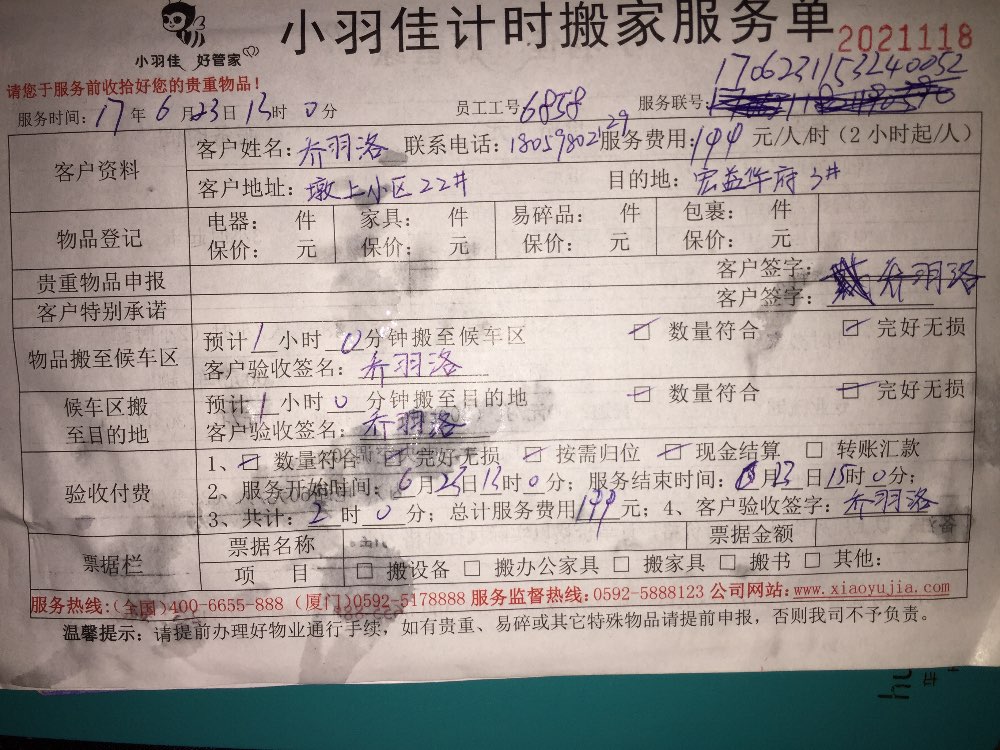 小羽佳 好管家
小羽佳计时搬家服务单
2021118
请您于服务前收拾好您的贵重物品!
1706231153240052
服务时间: 17 年 6 月 23 日 13 时 0 分 员工工号 6858 服务联号:
客户资料
客户姓名: 乔羽洛 联系电话: 18059802129 服务费用: 199 元/人/时 (2小时起/人)
客户地址: 墩上小区22# 目的地: 宏益华府3#
物品登记
电器: 件 家具: 件 易碎品: 件 包裹: 件
保价: 元 保价: 元 保价: 元 保价: 元
贵重物品申报 客户签字: 乔羽洛
客户特别承诺 客户签字:
物品搬至候车区
预计 1 小时 0 分钟搬至候车区 ☑ 数量符合 ☑ 完好无损
客户验收签名: 乔羽洛
候车区搬至目的地
预计 1 小时 0 分钟搬至目的地 ☑ 数量符合 ☑ 完好无损
客户验收签名: 乔羽洛
验收付费
1、☑ 数量符合 ☑ 完好无损 ☑ 按需归位 ☑ 现金结算 □ 转账汇款
2、服务开始时间: 6 月 23 日 13 时 0 分; 服务结束时间: 6 月 23 日 15 时 0 分;
3、共计: 2 时 0 分; 总计服务费用 199 元; 4、客户验收签字: 乔羽洛
票据栏
票据名称 票据金额
项 目 □ 搬设备 □ 搬办公家具 □ 搬家具 □ 搬书 □ 其他:
服务热线:(全国)400-6655-888 (厦门)0592-5178888 服务监督热线:0592-5888123 公司网站:www.xiaoyujia.com
温馨提示: 请提前办理好物业通行手续, 如有贵重、易碎或其它特殊物品请提前申报, 否则我司不予负责。